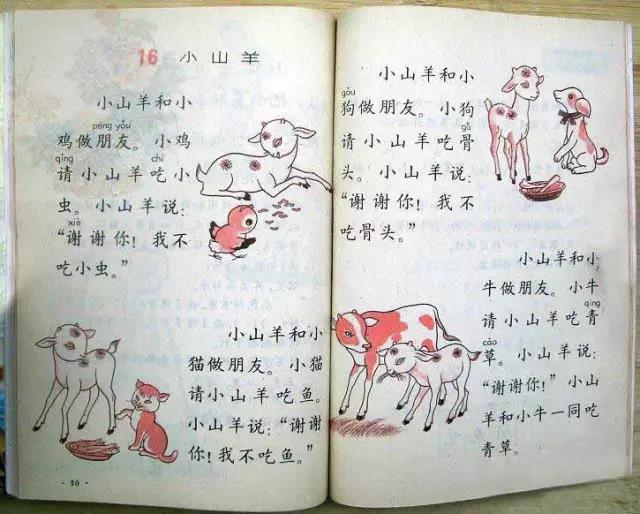 16 小山羊
小山羊和小
péng yǒu
鸡做朋友。小鸡
qǐng chī
请小山羊吃小
虫。小山羊说:
xiè
“谢谢你!我不
吃小虫。”
小山羊和小
猫做朋友。小猫
请小山羊吃鱼。
小山羊说:“谢谢
你!我不吃鱼。”
·30·
小山羊和小
gǒu
狗做朋友。小狗
gǔ
请小山羊吃骨
头。小山羊说:
“谢谢你!我不
吃骨头。”
小山羊和小
牛做朋友。小牛
qīng
请小山羊吃青
cǎo
草。小山羊说:
“谢谢你!”小山
羊和小牛一同吃
青草。